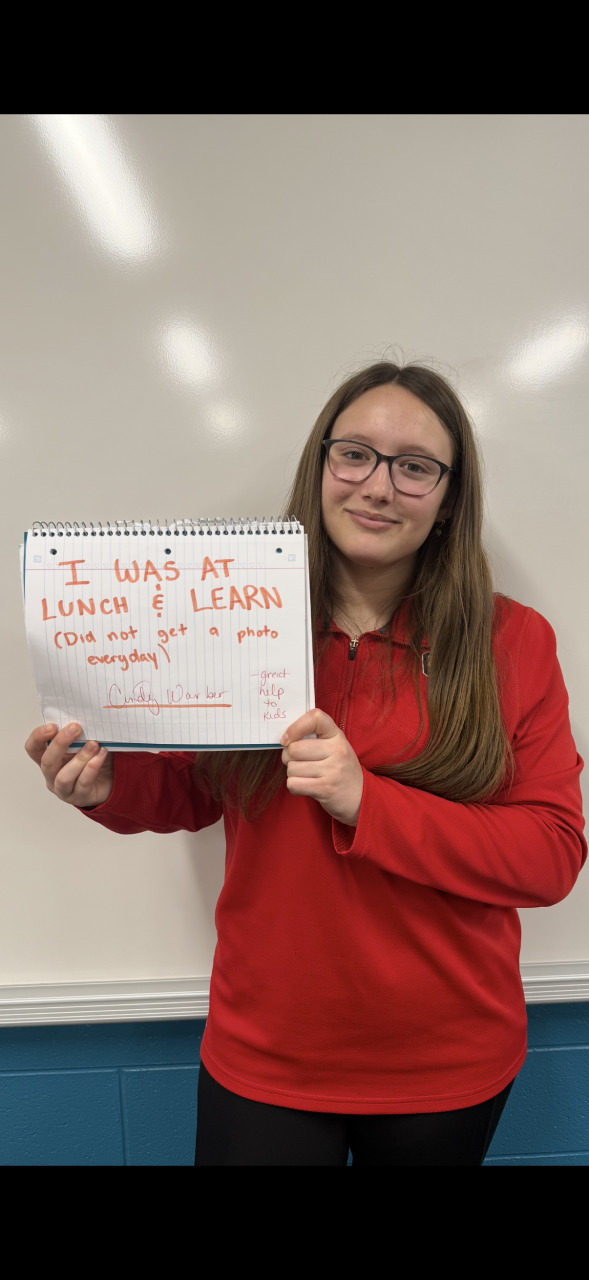 I WAS AT
LUNCH & LEARN
(Did not get a photo
everyday)
Cindy Warber
-great
help
to
kids